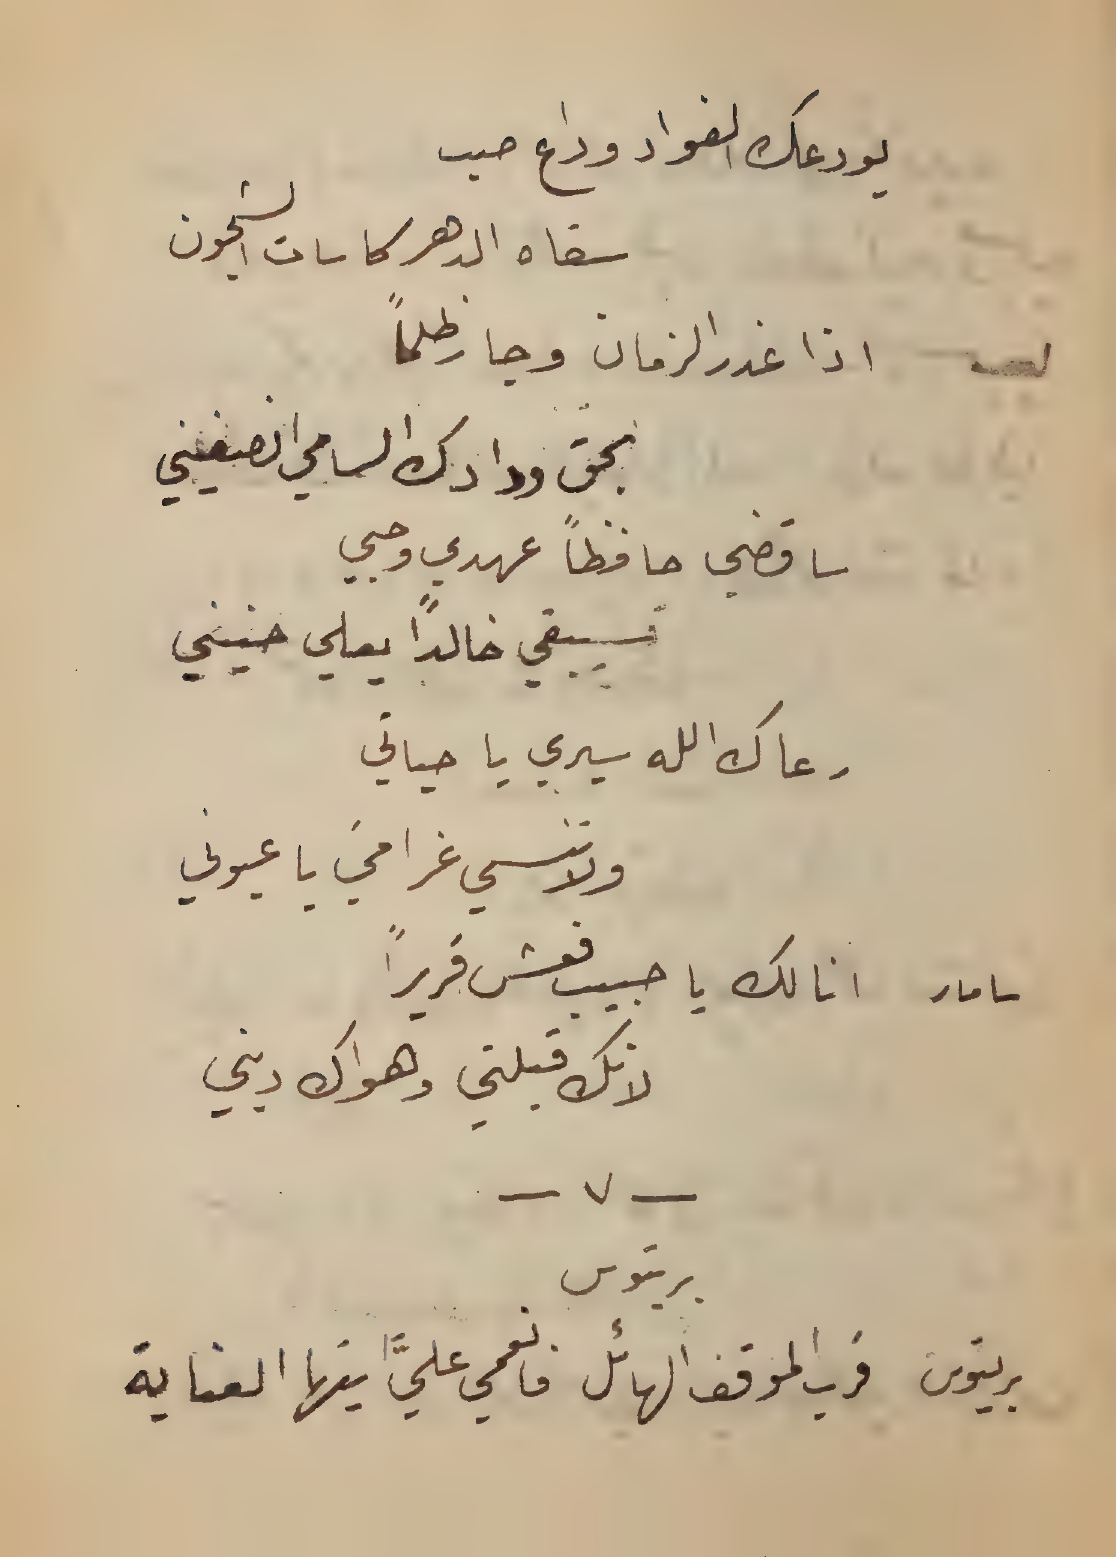 يودعك الفواد وداع صب
سقاه الدهر كاسات الشجون
اذا غدر الزمان وجار ظلماً
بحق ودادك السامي انصفيني
ساقضي حافظاً عهدي وحبي
فسيبقي خالداً يعلي حنيني
رعاك الله سيري يا حياتي
ولا تنسي غرامي يا عيوني
سامار انا لك يا حبيب فعش قريراً
لانك قبلتي وهواك ديني
— ٧ —
بريتوس
بريتوس قرب الموقف الهائل فانعمي عليَّ ايتها العناية